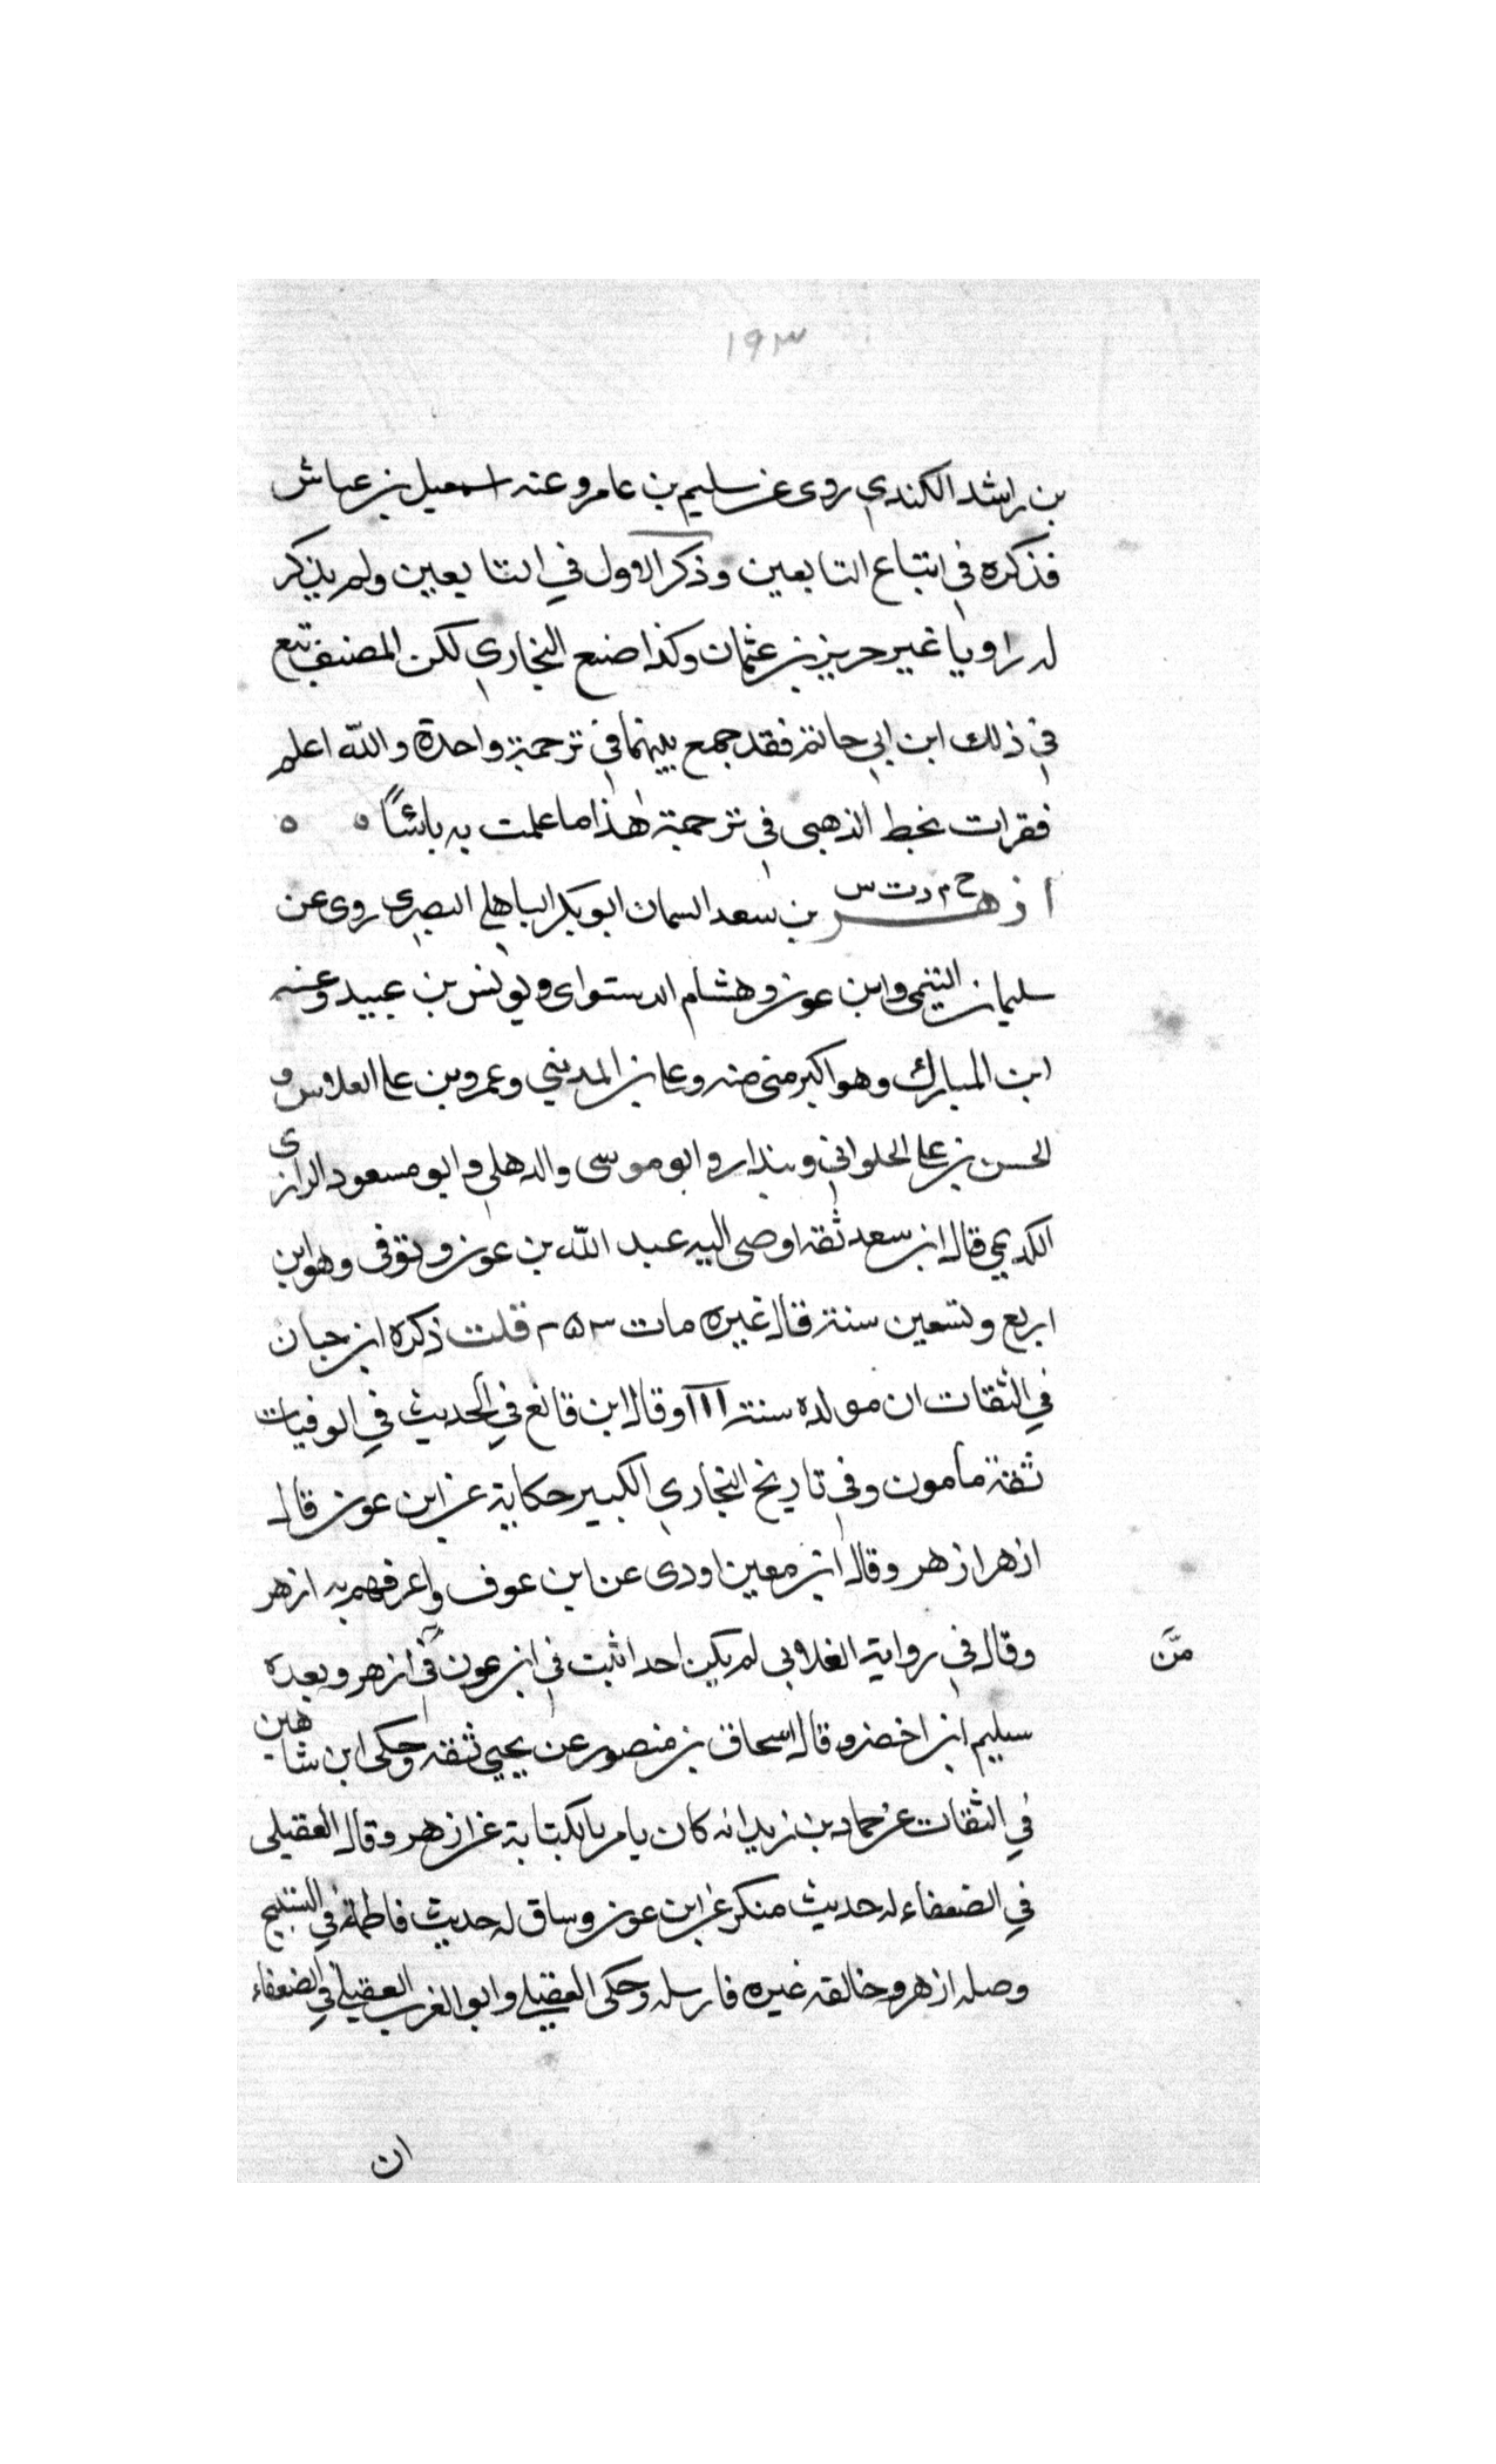 ١٩٣
بن راشد الكندي روى عن سليم بن عامر وعنه اسمعيل بن عياش
فذكره في اتباع التابعين وذكر الاول في التابعين ولم يذكر
له راويا غير حريز بن عثمان وكذا صنع البخاري لكن المصنف تبع
في ذلك ابن ابي حاتم فقد جمع بينهما في ترجمة واحدة والله اعلم
فقرات بخط الذهبي في ترجمة هذا ما علمت به باسًا ه ه
خ م د ت س
ازهر بن سعد السمان ابو بكر الباهلي البصري روى عن
سليمان التيمي وابن عون وهشام الدستواى ويونس بن عبيد وعنه
ابن المبارك وهو اكبر منه وعلي بن المديني وعمرو بن علي الفلاس و
الحسن بن علي الحلواني وبندار وابو موسى والذهلي وابو مسعود الرازى
الكديمي قال ابن سعد ثقة اوصى اليه عبد الله بن عون وتوفى وهو ابن
اربع وتسعين سنة قال غيره مات ٢٥٣ قلت ذكره ابن حبان
في الثقات ان مولده سنة ١١١ وقال ابن قانع في الحديث في الوفيات
ثقة مامون وفي تاريخ البخاري الكبير حكاية عن ابن عون قال
ازهر ازهر وقال ابن معين اودى عن ابن عوف واعرفهم به ازهر
وقال في رواية الغلابي لم يكن احد اثبت في ابن عون في ازهر وبعده
مّن
سليم ابن اخضر وقال اسحاق بن منصور عن يحيى ثقة وحكى ابن شاهين
في الثقات عن حماد بن زيد انه كان يامر بالكتابة عن ازهر وقال العقيلي
في الضعفاء له حديث منكر عن ابن عون وساق له حديث فاطمة في التسبيح
وصله ازهر وخالفه غيره فارسله وحكى العقيلي وابو العرب العقيلي في الضعفاء
ان